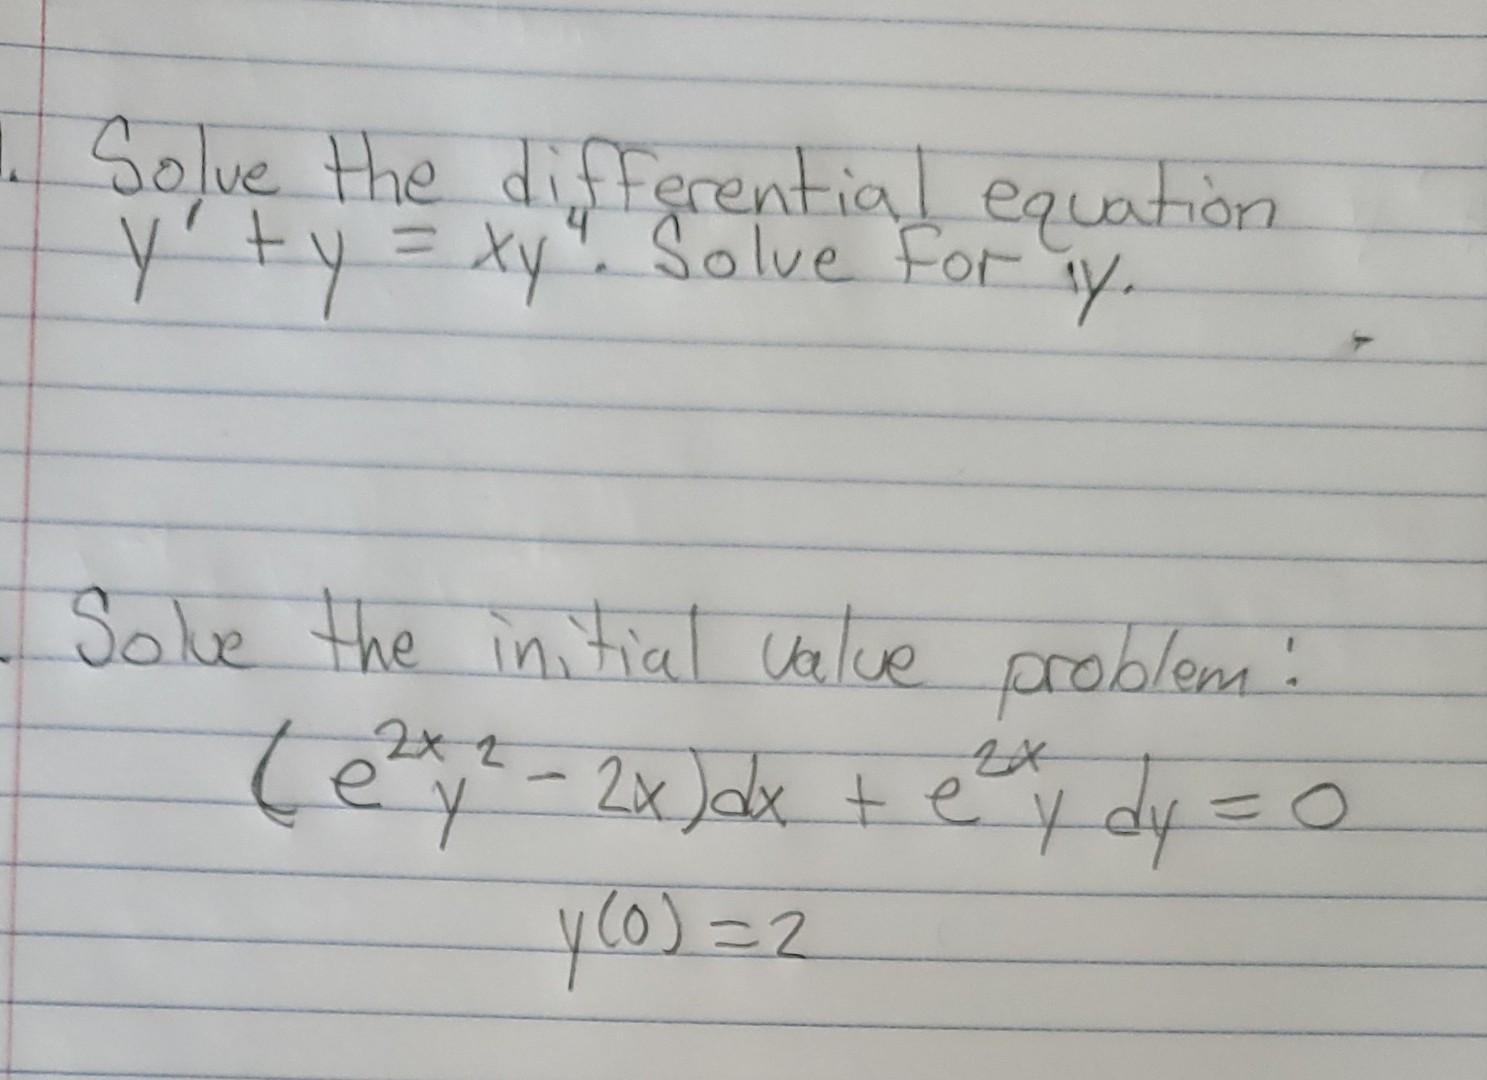 1. Solve the differential equation
y' + y = xy⁴. Solve for y.
. Solve the initial value problem:
(e²ˣy² - 2x)dx + e²ˣy dy = 0
y(0) = 2